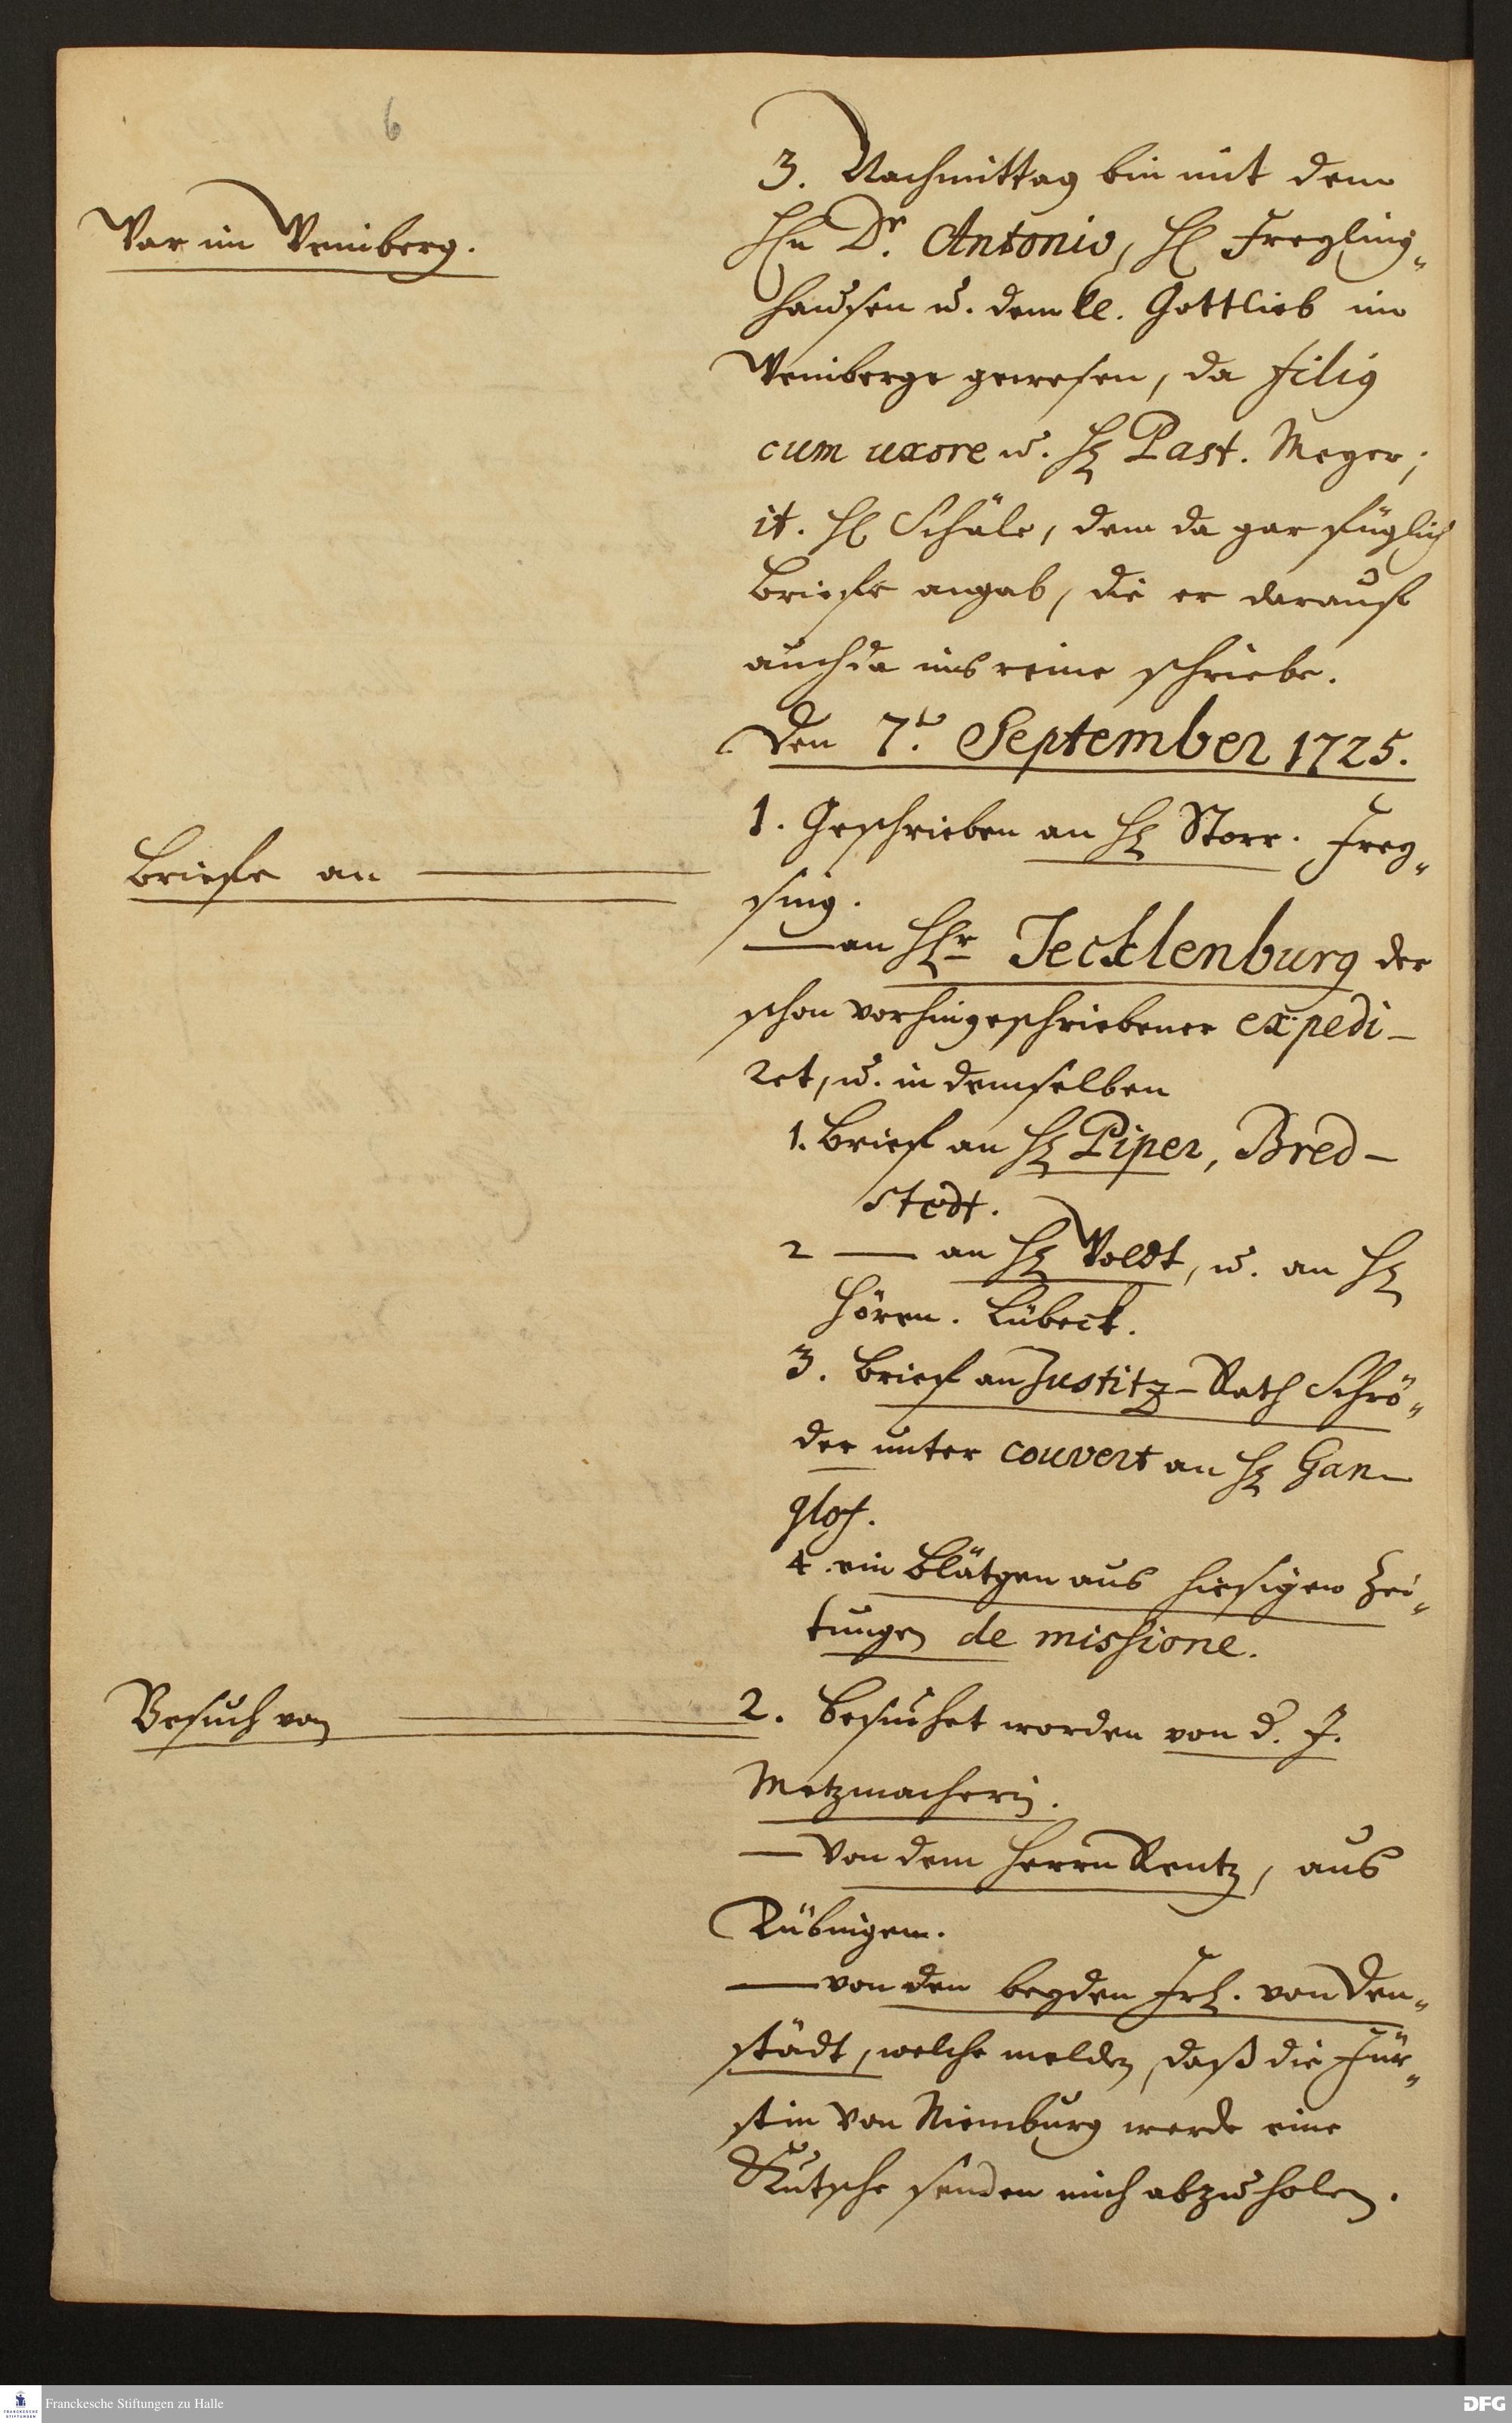 6
3. Nachmittag bin mit dem
War im Weinberg.
HEn Dr. Antonio, HE Freyling„
hausen u. dem kl. Gottlieb im
Weinberge gewesen, da filig
cum uxore u. H. Past. Meyer;
it. HE Schäle, dem da gar füglich
Briefe angab, die er darauf
auch da ins reine schriebe.
Den 7t. September 1725.
1. Geschrieben an H. Storr. Frey„
Briefe an
sing.
— an HEr Tecklenburg der
schon vorhin geschriebener expedi-
ret, u. in demselben
1. Brief an H. Piper, Bred-
stedt.
2 — an H. Voldt, u. an H.
Hören. Lübeck.
3. Brief an Justitz-Rath Schrö„
der unter couvert an H. Gan-
glof.
4. ein Blätgen aus hiesigen Zei„
tungen de missione.
Besuch von
2. Besuchet worden von d. J.
Metzmacherin.
— Von dem Herrn Rentz, aus
Tübingem.
— von den beyden Frl. von Den„
städt, welche melden, daß die Für„
stin von Niemburg werde eine
Kutsche senden mich abzuholen.
Franckesche Stiftungen zu Halle
FRANCKESCHE STIFTUNGEN
DFG